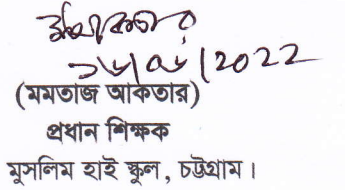 ১৬/০৬/2022
(মমতাজ আকতার)
প্রধান শিক্ষক
মুসলিম হাই স্কুল, চট্টগ্রাম।